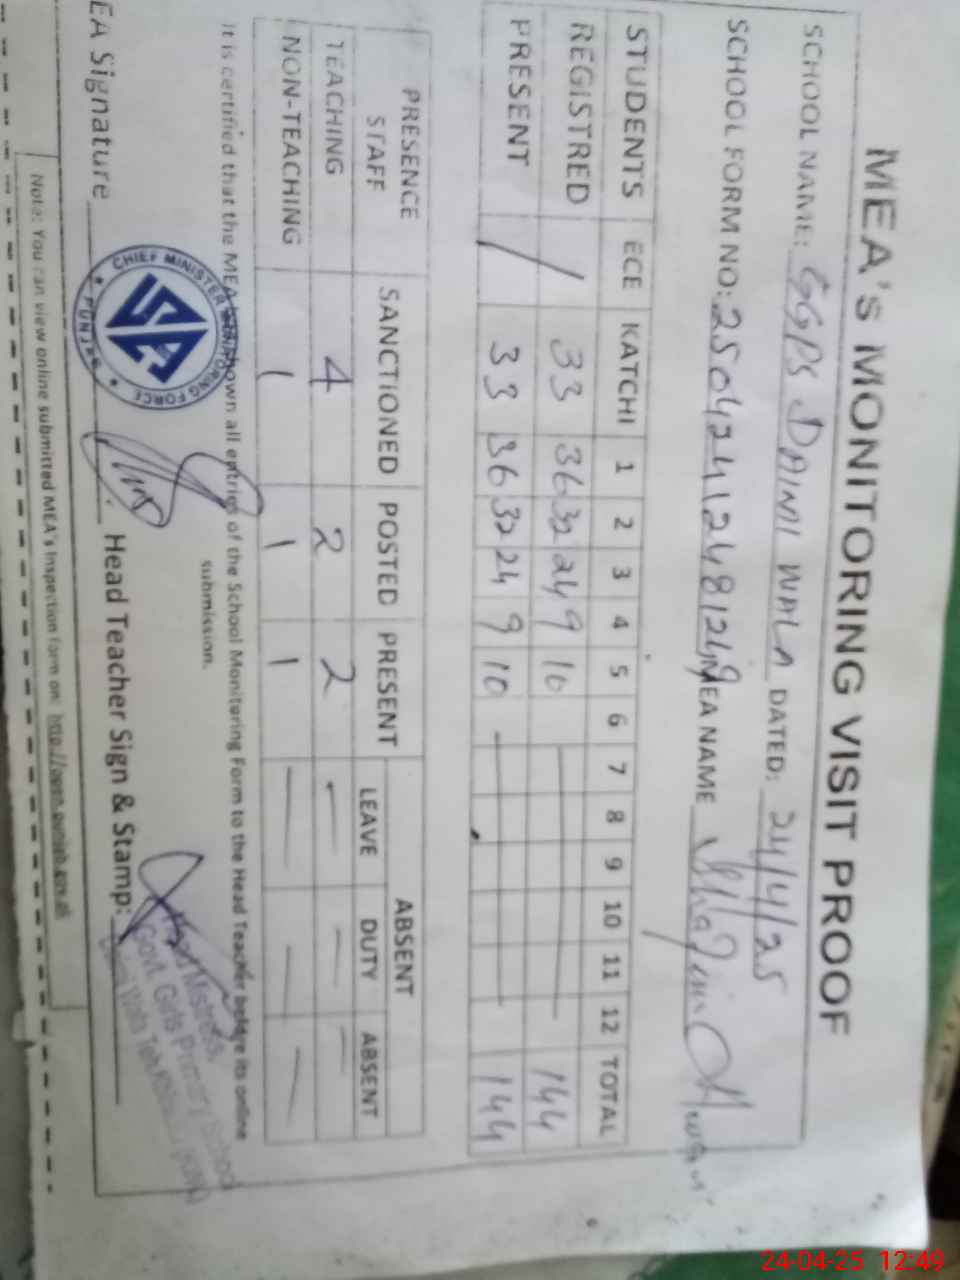 MEA's MONITORING VISIT PROOF
SCHOOL NAME: GGPS DAINI WALA DATED: 24/4/25
SCHOOL FORM NO: MEA NAME
STUDENTS ECE KATCHI 1 2 3 4 5 6 7 8 9 10 11 12 TOTAL
REGISTRED 33 36 32 24 9 10 144
PRESENT / 33 36 32 24 9 10 144
PRESENCE STAFF SANCTIONED POSTED PRESENT ABSENT
LEAVE DUTY ABSENT
TEACHING 4 2 2 — — —
NON-TEACHING 1 1 1 — — —
It is certified that the MEA has shown all entries of the School Monitoring Form to the Head Teacher before its online
submission.
EA Signature Head Teacher Sign & Stamp:
CHIEF MINISTER MONITORING FORCE
PUNJAB
Head Mistress
Govt. Girls Primary School
Note: You can view online submitted MEA's Inspection form on: http://open.punjab.gov.pk
24-04-25 12:49